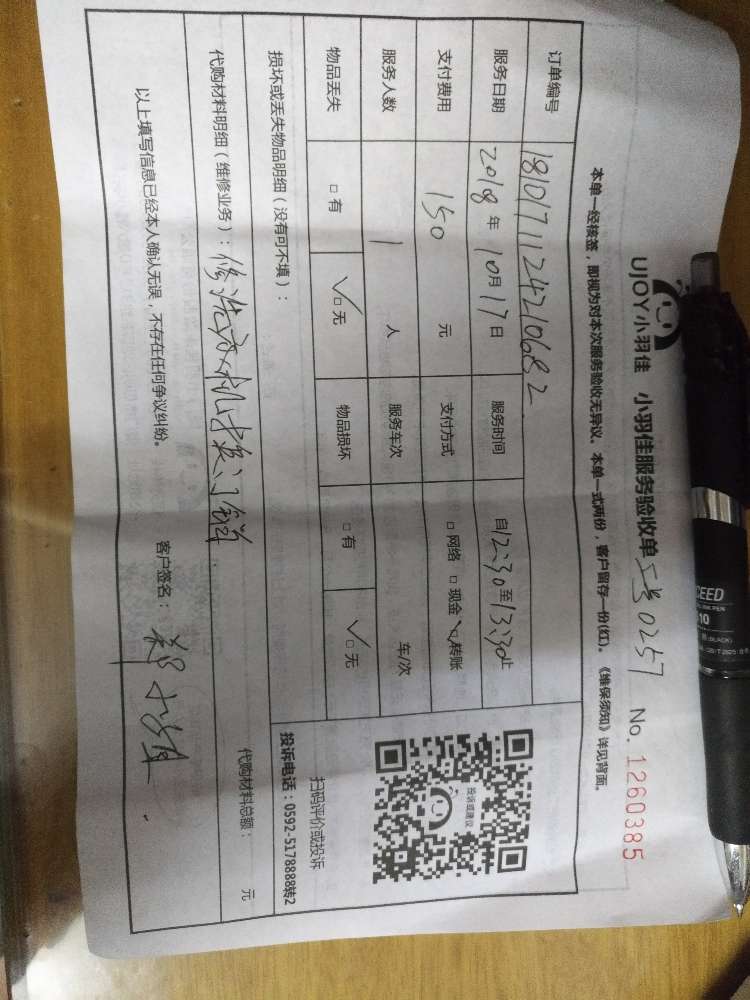 UJOY小羽佳 小羽佳服务验收单 工号0257 No. 1260385
本单一经核签，即视为对本次服务验收无异议。本单一式两份，客户留存一份(红)。《维保须知》详见背面。
订单编号 1810171124210682
服务日期 2018年10月17日 服务时间 自12:30至13:30止
支付费用 150 元 支付方式 □网络 □现金 ☑转账
服务人数 1 人 服务车次 车/次
物品丢失 □有 ☑无 物品损坏 □有 ☑无
损坏或丢失物品明细（没有可不填）：
扫码评价或投诉
投诉电话：0592-5178888转2
投诉或建议
代购材料明细（维修业务）：修洗衣机换门锁
代购材料总额： 元
以上填写信息已经本人确认无误，不存在任何争议纠纷。 客户签名：
CEED
INK PEN
10
(BLACK)